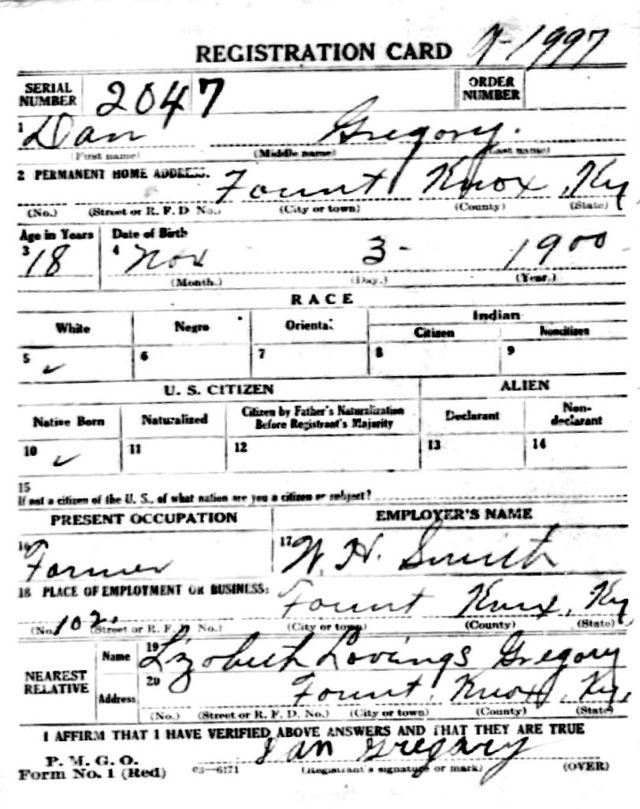 REGISTRATION CARD 7-1997
SERIAL NUMBER 2047 ORDER NUMBER
1 Dan Gregory.
(First name) (Middle name) (Last name)
2 PERMANENT HOME ADDRESS. Fount Knox, Ky
(No.) (Street or R. F. D No.) (City or town) (County) (State)
Age in Years Date of Birth
3 18 4 Nov 3- 1900
(Month.) (Day.) (Year.)
RACE
White Negro Oriental Indian
Citizen Noncitizen
5 ✓ 6 7 8 9
U. S. CITIZEN ALIEN
Native Born Naturalized Citizen by Father's Naturalization Before Registrant's Majority Declarant Non-declarant
10 ✓ 11 12 13 14
15
If not a citizen of the U. S., of what nation are you a citizen or subject?
PRESENT OCCUPATION EMPLOYER'S NAME
16 Farmer 17 W. H. Smith
18 PLACE OF EMPLOYMENT OR BUSINESS: Fount Knox, Ky
(No.) 102. (Street or R. F. D. No.) (City or town) (County) (State)
NEAREST RELATIVE Name 19 Lizobeth Lovings Gregory
Address 20 Fount, Knox, Ky.
(No.) (Street or R. F. D. No.) (City or town) (County) (State)
I AFFIRM THAT I HAVE VERIFIED ABOVE ANSWERS AND THAT THEY ARE TRUE
P. M. G. O. Dan Gregory
Form No. 1 (Red) 03-6171 (Registrant's signature or mark) (OVER)